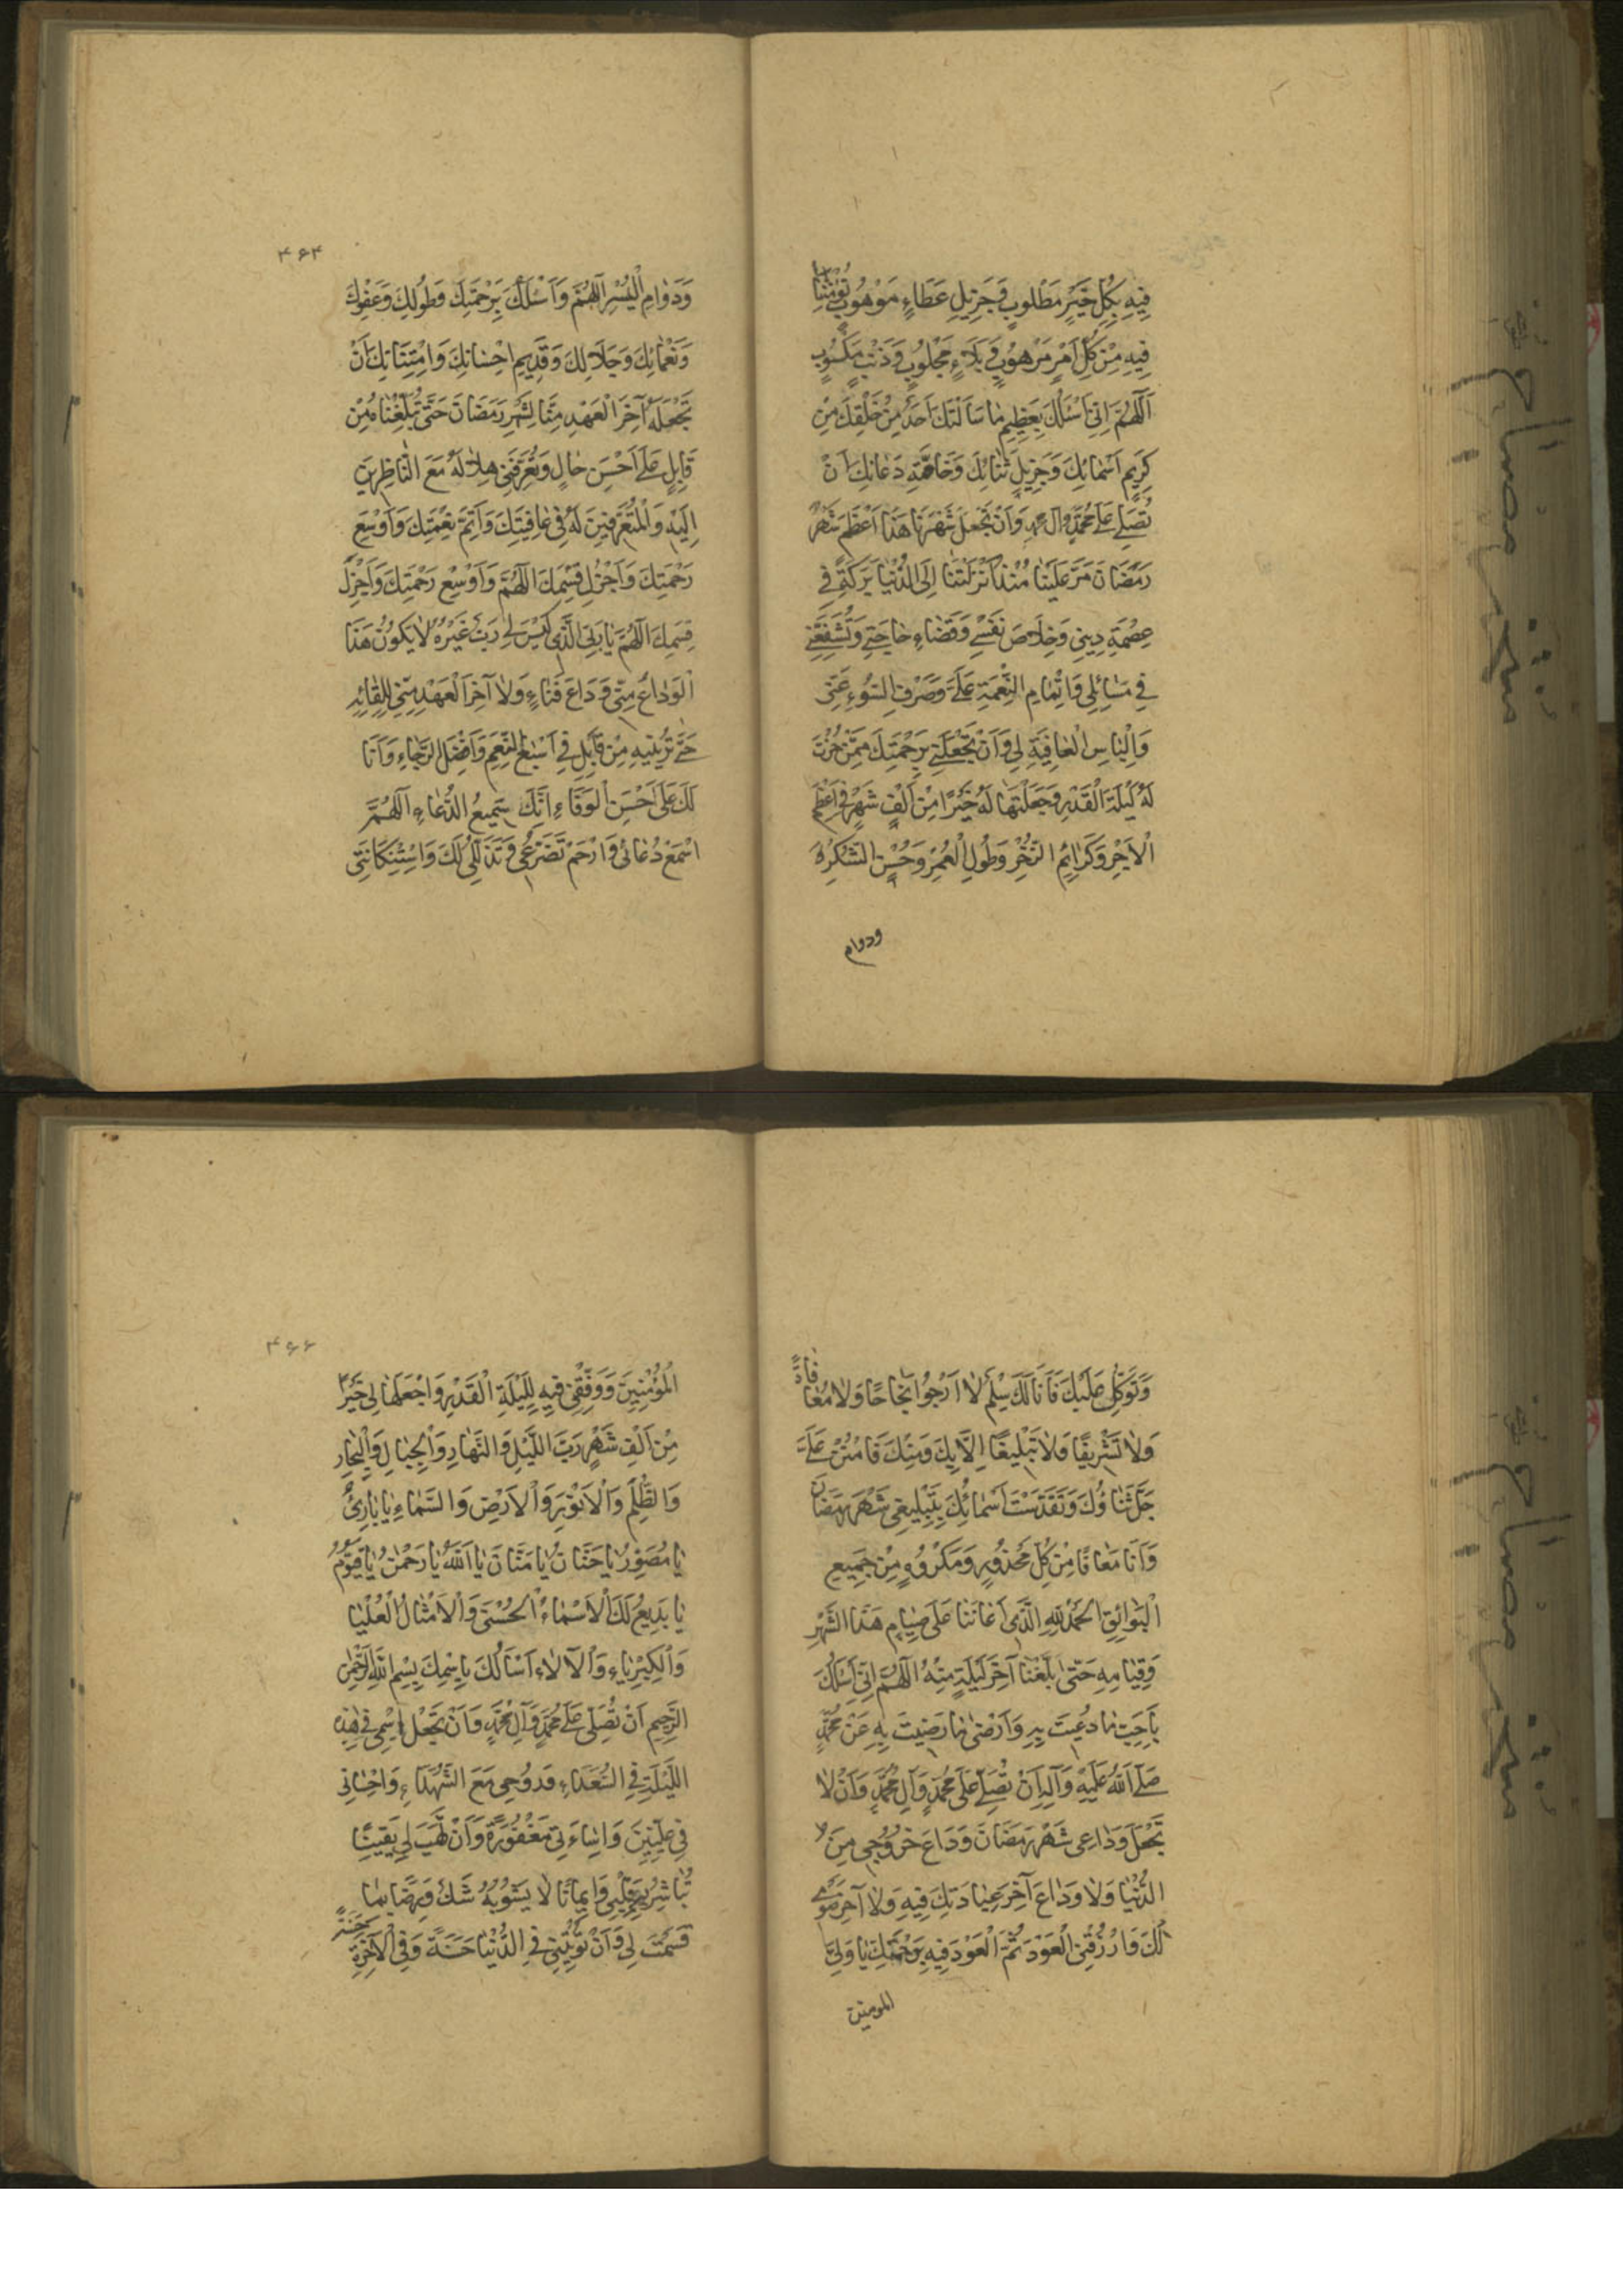 فِيهِ بِكُلِّ خَيْرٍ مَطْلُوبٍ وَجَزِيلِ عَطَاءٍ مَوْهُوبٍ تُؤْمِنُنَا
فِيهِ مِنْ كُلِّ اَمْرٍ مَرْهُوبٍ وَبَلَاءٍ مَجْلُوبٍ وَذَنْبٍ مَكْسُوبٍ
اَللّٰهُمَّ اِنِّي اَسْئَلُكَ بِعَظِيمِ مٰا سَاَلَتْكَ اَحَدٌ مِنْ خَلْقِكَ مِنْ
كَرِيمِ اَسْمٰائِكَ وَجَزِيلِ ثَنٰائِكَ وَخَاصَّةِ دَعٰائِكَ اَنْ
تُصَلِّيَ عَلٰى مُحَمَّدٍ وَآلِ مُحَمَّدٍ وَاَنْ تَجْعَلَ شَهْرَنٰا هَذَا اَعْظَمَ شَهْرِ
رَمَضَانَ مَرَّ عَلَيْنٰا مُنْذُ اَنْزَلْتَنٰا اِلَى الدُّنْيٰا بَرَكَةً فِي
عِصْمَةِ دِينِي وَخِلَاصَ نَفْسِي وَقَضٰاءِ حٰاجَتِي وَتُشَفِّعَنِي
فِي مَسٰائِلِي وَاِتْمٰامِ النِّعْمَةِ عَلَيَّ وَصَرْفِ السُّوءِ عَنِّي
وَاِلْبٰاسِ الْعٰافِيَةِ لِي وَاَنْ تَجْعَلَنِي بِرَحْمَتِكَ مِمَّنْ حُزْتَ
لَهُ لَيْلَةَ الْقَدْرِ وَجَعَلْتَهٰا لَهُ خَيْرًا مِنْ اَلْفِ شَهْرٍ فِي اَعْظَمِ
الْاَجْرِ وَكَرٰائِمِ الذُّخْرِ وَطُولِ الْعُمْرِ وَحُسْنِ الشُّكْرِ
ودوام
۴۶۴
وَدَوٰامِ الْيُسْرِ اَللّٰهُمَّ وَاَسْئَلُكَ بِرَحْمَتِكَ وَطَوْلِكَ وَعَفْوِكَ
وَنَعْمٰائِكَ وَجَلَالِكَ وَقَدِيمِ اِحْسٰانِكَ وَامْتِنَانِكَ اَنْ
تَجْعَلَهُ آخِرَ الْعَهْدِ مِنَّا لِشَهْرِ رَمَضَانَ حَتَّى تُبَلِّغْنٰاهُ مِنْ
قَابِلٍ عَلٰى اَحْسَنِ حٰالٍ وَتُعَرِّفَنِي هِلٰالَهُ مَعَ النّٰاظِرِينَ
اِلَيْهِ وَالْمُتَعَرِّفِينَ لَهُ فِي عٰافِيَتِكَ وَاَتَمِّ نِعْمَتِكَ وَاَوْسَعِ
رَحْمَتِكَ وَاَجْزَلِ قِسْمِكَ اَللّٰهُمَّ وَاَوْسِعْ رَحْمَتِكَ وَاَجْزَلِ
قِسَمِكَ اَللّٰهُمَّ يٰا رَبِّيَ الَّذِي لَيْسَ لِي رَبٌّ غَيْرُهُ لٰا يَكُونُ هَذَا
الْوَدٰاعُ مِنِّي وَدَاعَ فَنٰاءٍ وَلٰا آخِرَ الْعَهْدِ مِنِّي لِلِّقٰائِهِ
حَتّٰى تُرِيَنِيهِ مِنْ قَابِلٍ فِي اَسْبَغِ النِّعَمِ وَاَفْضَلِ الرَّجٰاءِ وَاَنَا
لَكَ عَلَى اَحْسَنِ الْوَفَاءِ اِنَّكَ سَمِيعُ الدُّعٰاءِ اَللّٰهُمَّ
اسْمَعْ دُعٰائِي وَارْحَمْ تَضَرُّعِي وَتَذَلُّلِي لَكَ وَاسْتِكَانَتِي
وَتَوَكُّلِي عَلَيْكَ فَاَنَا لَكَ سِلْمٌ لٰا اَرْجُو نَجٰاحًا وَلٰا مُعٰافٰاةً
وَلٰا تَشْرِيفًا وَلٰا تَبْلِيغًا اِلَّا بِكَ وَمِنْكَ فَامْنُنْ عَلَيَّ
جَلَّ ثَنٰاؤُكَ وَتَقَدَّسَتْ اَسْمٰائُكَ بِتَبْلِيغِي شَهْرَ رَمَضَانَ
وَاَنَا مُعٰافًا مِنْ كُلِّ مَحْذُورٍ وَمَكْرُوهٍ مِنْ جَمِيعِ
الْبَوٰائِقِ الْحَمْدُ لِلّٰهِ الَّذِي اَعٰانَنٰا عَلَى صِيٰامِ هَذَا الشَّهْرِ
وَقِيٰامِهِ حَتّٰى بَلَّغَنٰا آخِرَ لَيْلَةٍ مِنْهُ اَللّٰهُمَّ اِنِّي اَسْئَلُكَ
بِاَحَبِّ مٰا دُعِيتَ بِهِ وَاَرْضٰى مٰا رَضِيتَ بِهِ عَنْ مُحَمَّدٍ
صَلَّى اللّٰهُ عَلَيْهِ وَآلِهِ اَنْ تُصَلِّيَ عَلَى مُحَمَّدٍ وَآلِ مُحَمَّدٍ وَاَنْ لٰا
تَجْعَلَ وَدٰاعِي شَهْرَ رَمَضَانَ وَدَاعَ خُرُوجِي مِنَ
الدُّنْيٰا وَلٰا وَدٰاعَ آخِرِ عِبٰادَتِكَ فِيهِ وَلٰا آخِرَ صَوْمِي
لَكَ فَارْزُقْنِي الْعَوْدَ ثُمَّ الْعَوْدَ فِيهِ بِرَحْمَتِكَ يٰا وَلِيَّ
المومنین
۴۶۶
الْمُؤْمِنِينَ وَوَفِّقْنِي فِيهِ لِلَيْلَةِ الْقَدْرِ وَاجْعَلْهٰا لِي خَيْرًا
مِنْ اَلْفِ شَهْرٍ رَبَّ اللَّيْلِ وَالنَّهٰارِ وَالْجِبٰالِ وَالْبِحٰارِ
وَالظُّلَمِ وَالْاَنْوٰرِ وَالْاَرْضِ وَالسَّمٰاءِ يٰا بٰارِئُ
يٰا مُصَوِّرُ يٰا حَنَّانُ يٰا مَنَّانُ يٰا اَللّٰهُ يٰا رَحْمٰنُ يٰا قَيُّومُ
يٰا بَدِيعُ لَكَ الْاَسْمٰاءُ الْحُسْنٰى وَالْاَمْثٰالُ الْعُلْيٰا
وَالْكِبْرِيٰاءِ وَالْآلٰاءِ اَسْاَلُكَ بِاسْمِكَ بِسْمِ اللّٰهِ الرَّحْمٰنِ
الرَّحِيمِ اَنْ تُصَلِّيَ عَلٰى مُحَمَّدٍ وَآلِ مُحَمَّدٍ وَاَنْ تَجْعَلَ اِسْمِي فِي هٰذِهِ
اللَّيْلَةِ فِي السُّعَدَاءِ وَرُوحِي مَعَ الشُّهَدَاءِ وَاِحْسٰانِي
فِي عِلِّيِّينَ وَاِسٰاءَتِي مَغْفُورَةً وَاَنْ تَهَبَ لِي يَقِينًا
تُبٰاشِرُ بِهِ قَلْبِي وَاِيمٰانًا لٰا يَشُوبُهُ شَكٌّ وَرِضًا بِمٰا
قَسَمْتَ لِي وَاَنْ تُؤْتِيَنِي فِي الدُّنْيٰا حَسَنَةً وَفِي الْآخِرَةِ حَسَنَةً